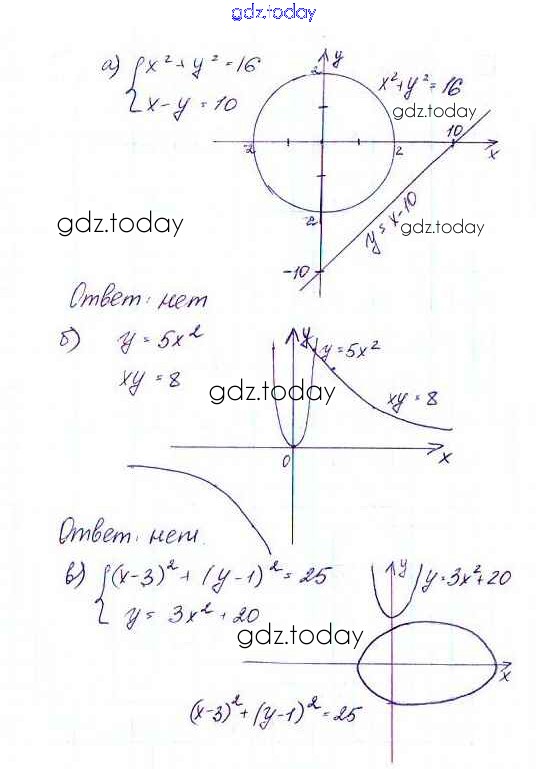 gdz.today
а) { x² + y² = 16
x - y = 10
y
2
x² + y² = 16
gdz.today
10
2
2
x
gdz.today
gdz.today
-2
y = x - 10
-10
Ответ: нет
б) y = 5x²
xy = 8
y
y = 5x²
gdz.today
xy = 8
0
x
Ответ: нет.
в) { (x-3)² + (y-1)² = 25
y = 3x² + 20
y
y = 3x² + 20
gdz.today
x
(x-3)² + (y-1)² = 25